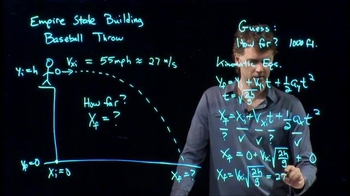 Empire State Building
Baseball Throw
Vxi = 55mph ≈ 27 m/s
yi=h
How far?
Xf = ?
yf=0
xi=0
Xf=?
Guess:
How far? 1000 ft.
Kinematic Eqs.
yf = yi + Vyi t + ½ ay t²
t = √2h/g
Xf = Xi + Vxi t + ½ ax t²
? ✓ ✓ ? ✓
Xf = 0 + Vxi √2h/g + 0
Xf = Vxi √2h/g = 27